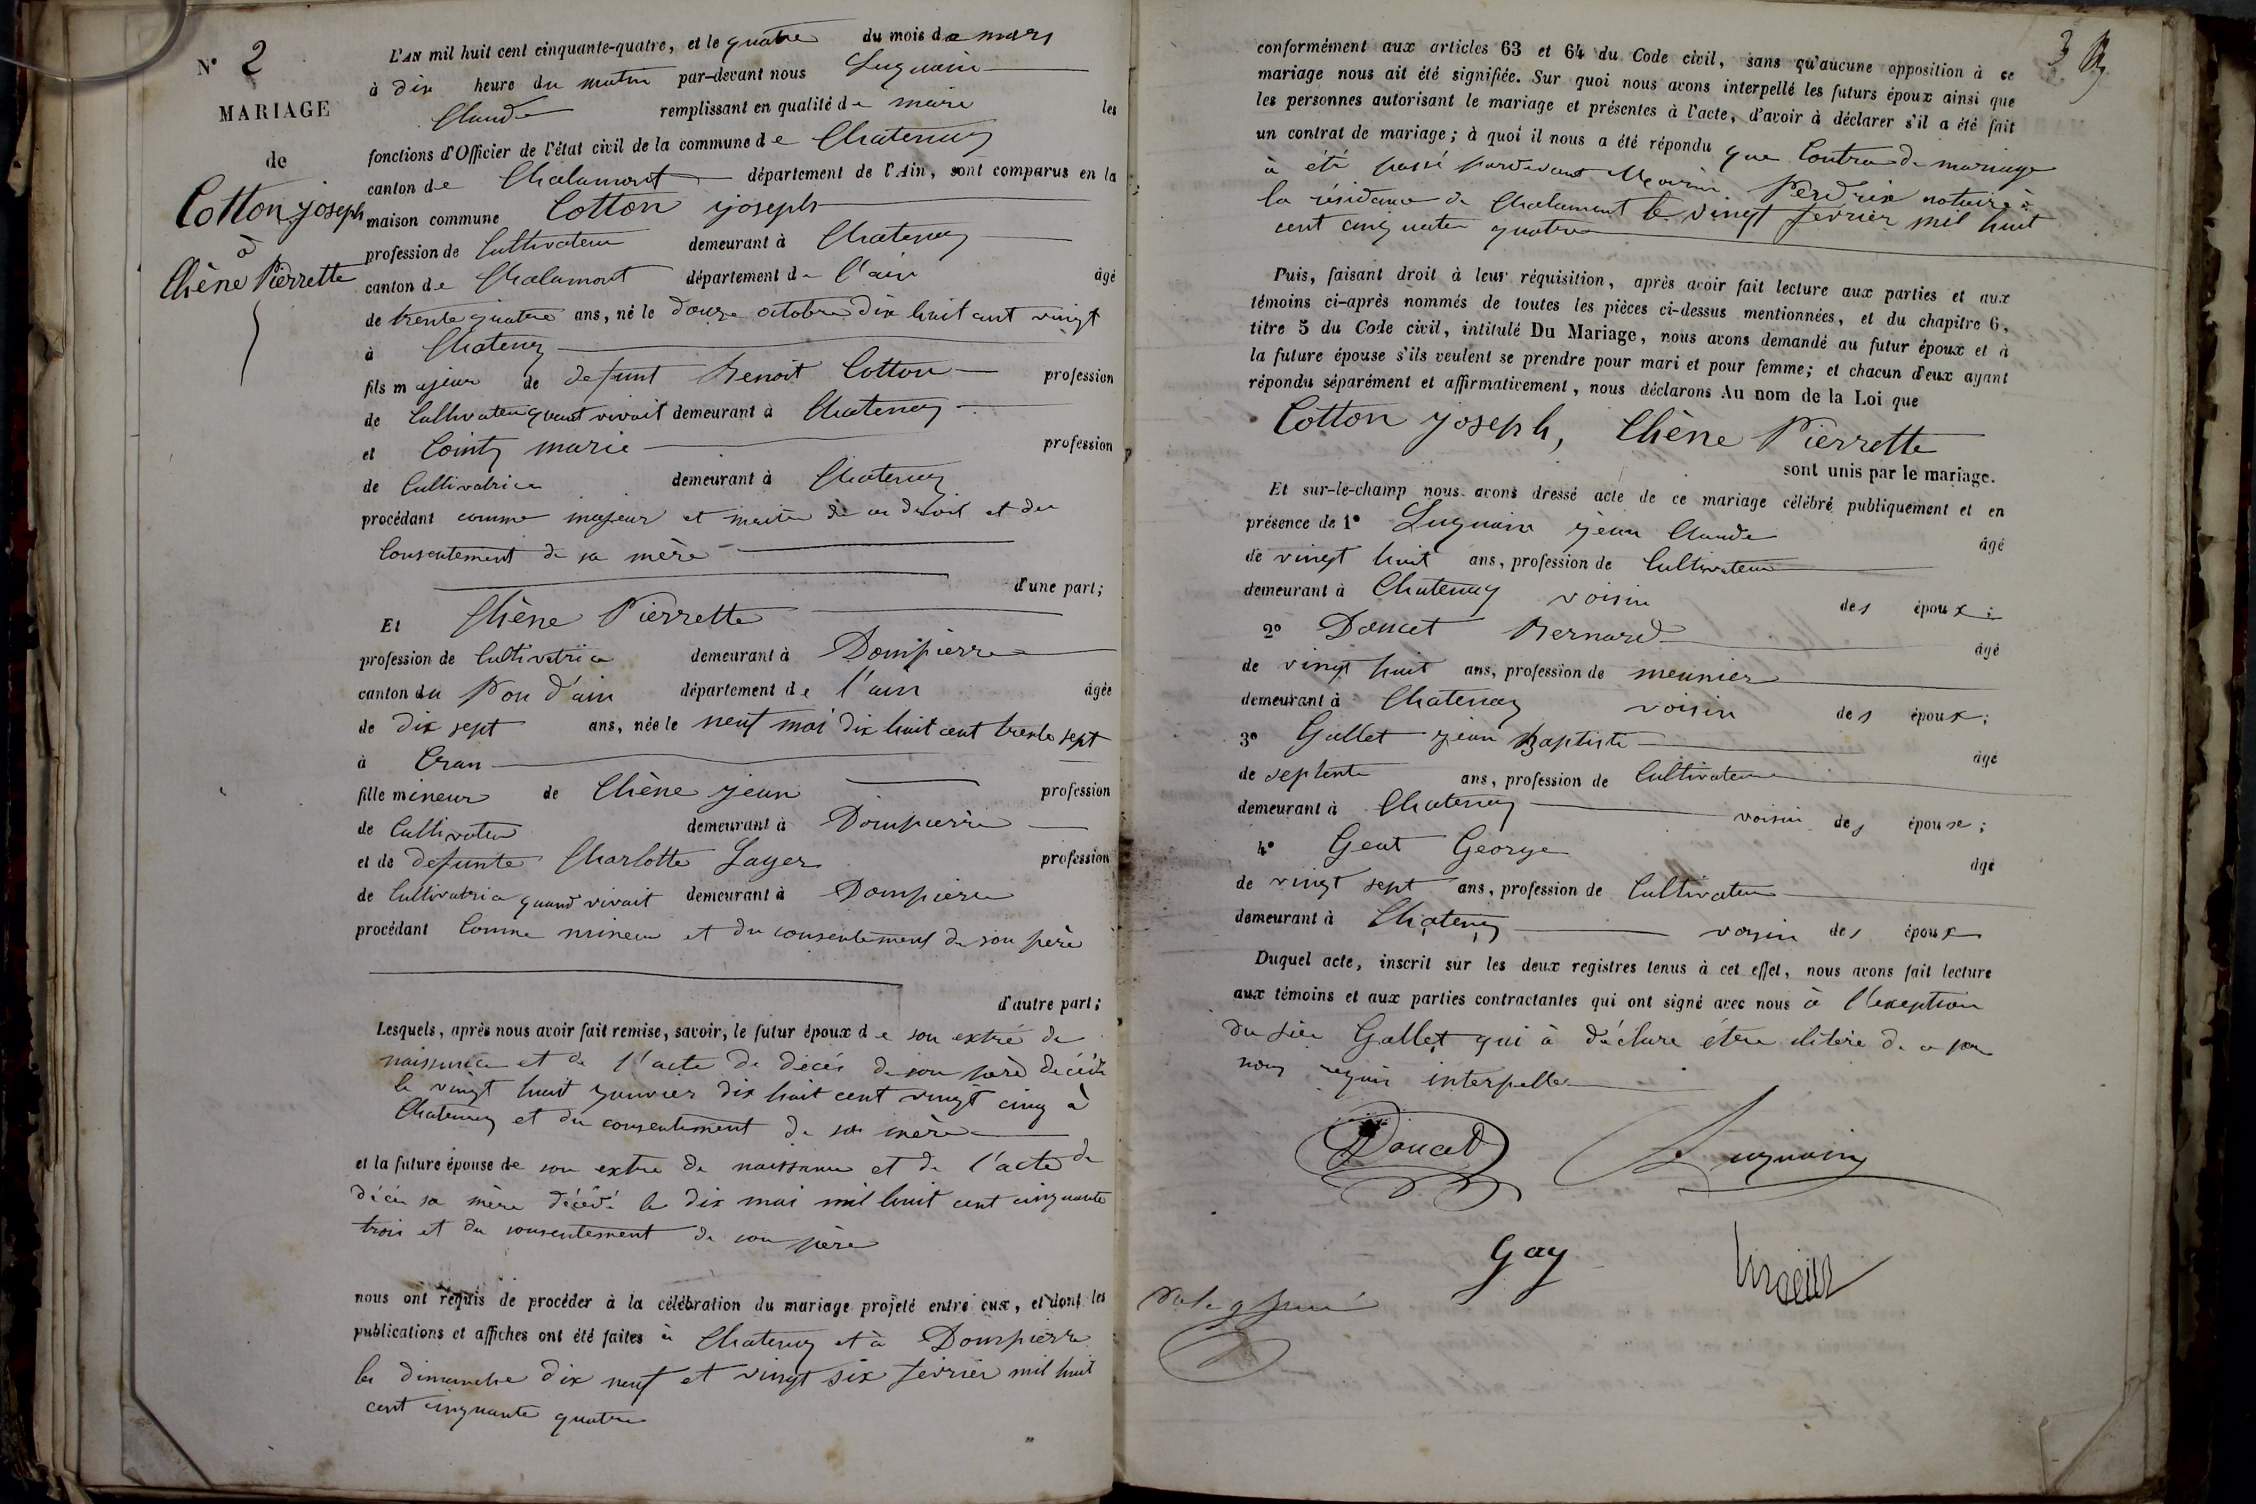 N° 2
MARIAGE
de
Cotton joseph
à
Chêne Pierrette
L'AN mil huit cent cinquante-quatre, et le quatre du mois de mars
à dix heure du matin par-devant nous Luguain
Claude remplissant en qualité de maire les
fonctions d'Officier de l'état civil de la commune de Chatenay
canton de Chalamont département de l'Ain, sont comparus en la
maison commune Cotton joseph
profession de Cultivateur demeurant à Chatenay
canton de Chalamont département de l'ain âgé
de trente quatre ans, né le douze octobre dix huit cent vingt
à Chatenay
fils majeur de defunt Benoit Cotton profession
de Cultivateur quant vivait demeurant à Chatenay
et Cointy marie profession
de Cultivatrice demeurant à Chatenay
procédant comme majeur et maitre de ces droit et du
Consentement de sa mère
d'une part;
Et Chêne Pierrette
profession de Cultivatrice demeurant à Dompierre
canton du Pon d'ain département de l'ain âgée
de dix sept ans, née le neuf mai dix huit cent trente sept
à Cran
fille mineur de Chêne jean profession
de Cultivateur demeurant à Dompierre
et de defunte Charlotte Layer profession
de Cultivatrice quand vivait demeurant à Dompierre
procédant Comme mineur et du consentement de son père
d'autre part;
Lesquels, après nous avoir fait remise, savoir, le futur époux de son extré de
naissance et de l'acte de décés de son père décédé
le vingt huit janvier dix huit cent vingt cinq à
Chatenay et du consentement de sa mère
et la future épouse de son extre de naissance et de l'acte de
décés sa mère décédé le dix mai mil huit cent cinquante
trois et du consentement de son père
nous ont requis de procéder à la célébration du mariage projeté entre eux, et dont les
publications et affiches ont été faites à Chatenay et à Dompierre
les dimanche dix neuf et vingt six fevrier mil huit
cent cinquante quatre
3
conformément aux articles 63 et 64 du Code civil, sans qu'aucune opposition à ce
mariage nous ait été signifiée. Sur quoi nous avons interpellé les futurs époux ainsi que
les personnes autorisant le mariage et présentes à l'acte, d'avoir à déclarer s'il a été fait
un contrat de mariage; à quoi il nous a été répondu que Contra de mariage
à été passé pardevant Perdrix notaire à
la résidance de Chalamont le vingt fevrier mil huit
cent cinquante quatre
Puis, faisant droit à leur réquisition, après avoir fait lecture aux parties et aux
témoins ci-après nommés de toutes les pièces ci-dessus mentionnées, et du chapitre 6,
titre 5 du Code civil, intitulé Du Mariage, nous avons demandé au futur époux et à
la future épouse s'ils veulent se prendre pour mari et pour femme; et chacun d'eux ayant
répondu séparément et affirmativement, nous déclarons Au nom de la Loi que
Cotton joseph, Chêne Pierrette
sont unis par le mariage.
Et sur-le-champ nous avons dressé acte de ce mariage célébré publiquement et en
présence de 1° Luguain jean Claude âgé
de vingt huit ans, profession de Cultivateur
demeurant à Chatenay voisin des époux;
2° Doucet Bernard âgé
de vingt huit ans, profession de meunier
demeurant à Chatenay voisin des époux;
3° Gallet jean Baptiste âgé
de septente ans, profession de Cultivateur
demeurant à Chatenay voisin des épouse;
4° Geat George âgé
de vingt sept ans, profession de Cultivateur
demeurant à Chatenay voysin des époux
Duquel acte, inscrit sur les deux registres tenus à cet effet, nous avons fait lecture
aux témoins et aux parties contractantes qui ont signé avec nous à l'exeption
du sieur Gallet qui à déclare étre ilitére de ce par
nous requis interpelle
Doucet Luguain
Gay